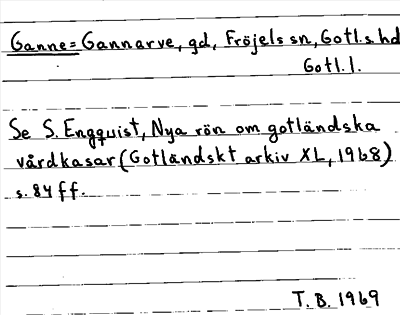 Ganne = Gannarve, gd, Fröjels sn, Gotl.s. hd
Gotl. l.
Se S. Engquist, Nya rön om gotländska
vårdkasar (Gotländskt arkiv XL, 1968)
s. 84 ff.
T. B. 1969